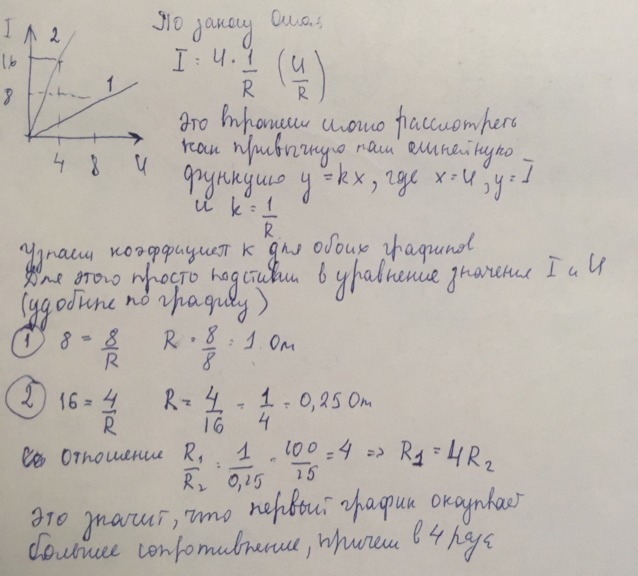 По закону Ома:
I
2
16
8
1
4
8
U
I = U · 1/R (U/R)
Это можно рассмотреть
как привычную нам линейную
функцию y = kx, где x = U, y = I
и k = 1/R
Узнаем коэффициент k для обоих графиков
Для этого просто подставим в уравнение значения I и U
(удобные по графику)
① 8 = 8/R R = 8/8 = 1 Ом
② 16 = 4/R R = 4/16 = 1/4 = 0,25 Ом
отношение R1/R2 = 1/0,25 = 100/25 = 4 => R1 = 4R2
Это значит, что первый график
большее сопротивление, причем в 4 раза